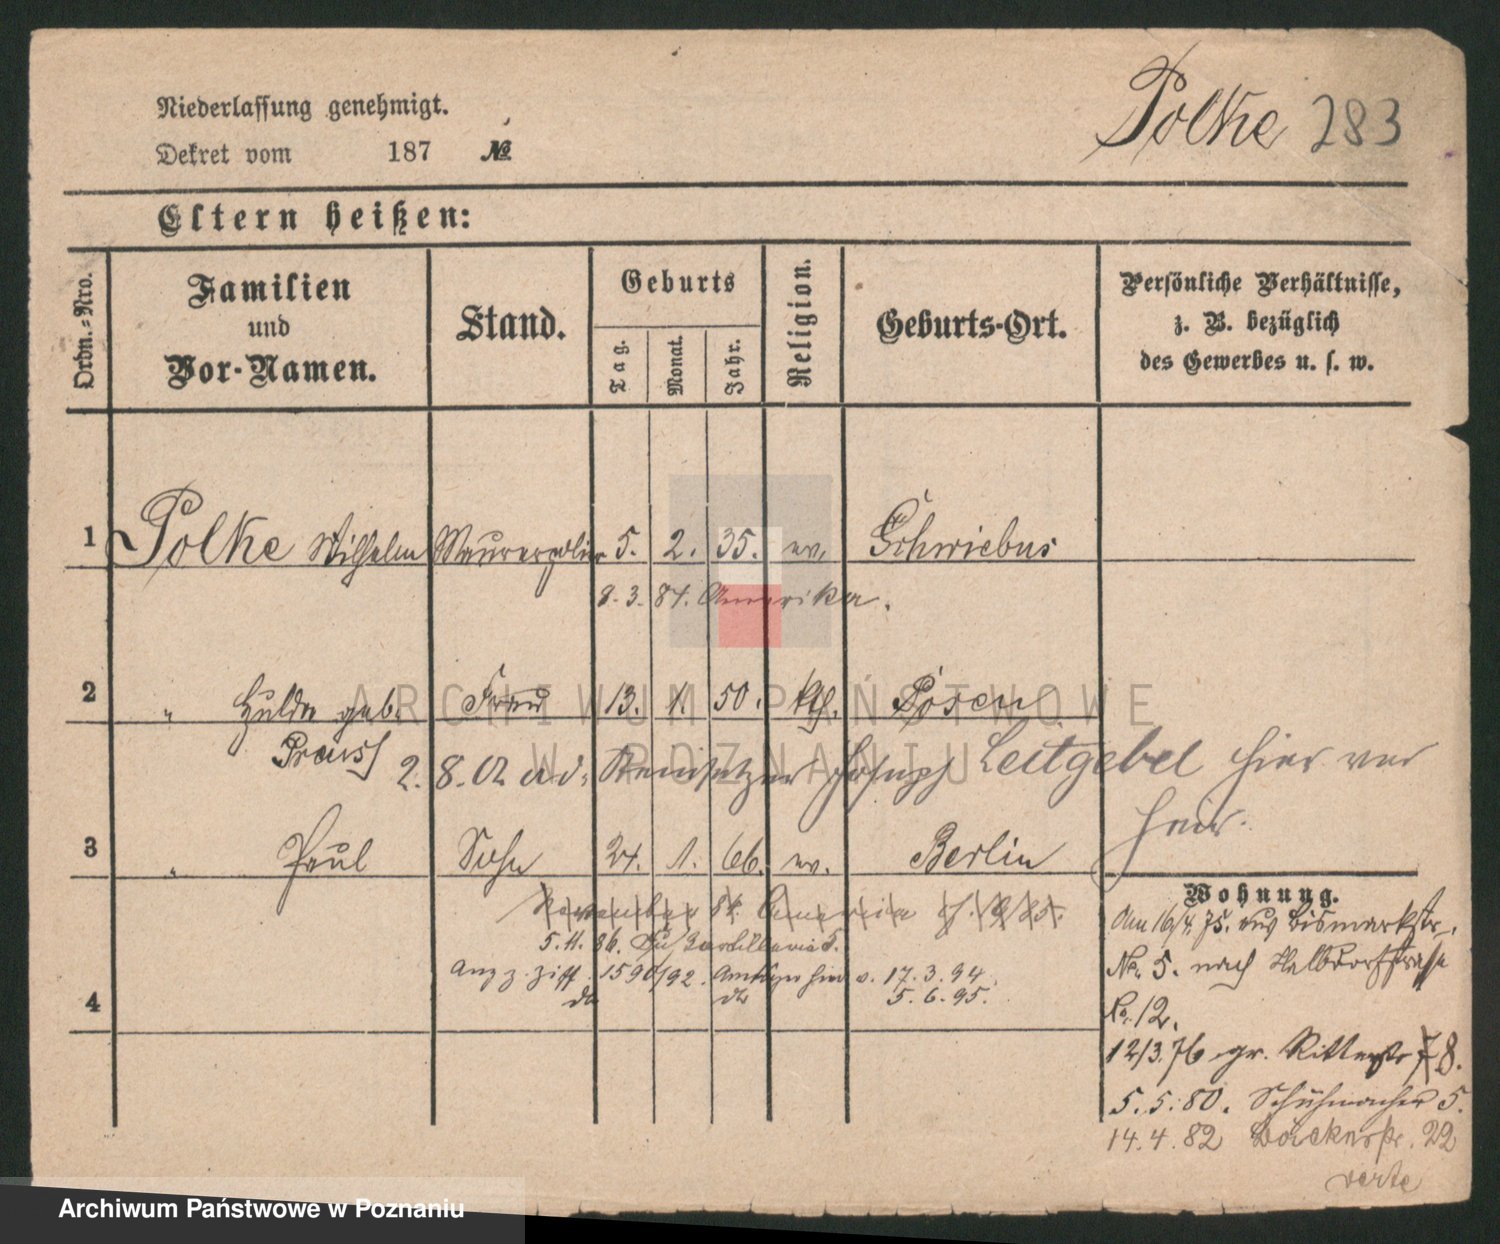 Niederlassung genehmigt.
Polke 283
Dekret vom 187 №
Eltern heißen:
Ordn.-Nro.
Familien
und
Vor-Namen.
Stand.
Geburts
Tag.
Monat.
Jahr.
Religion.
Geburts-Ort.
Persönliche Verhältnisse,
z. B. bezüglich
des Gewerbes u. s. w.
1 Polke Wilhelm Maurerpolier 5. 2. 35. ev. Schwiebus
8. 3. 81. Amerika.
2 " Hulda geb. Frau 13. 1. 50. kth. Posen
Preuss
2. 8. 02 a. d. Steinsetzer Joseph Leitgebel hier ver
heir.
3 " Paul Sohn 24. 1. 66. ev. Berlin
Wohnung.
November Amerika
5. 11. 86.
Anz. z. Ziff. 1590/92. v. 17. 3. 94.
do do 5. 6. 95.
4
Am 16/4. 75. aus Bismarkstr.
No. 5. nach Halbdorfstrasse
No. 12.
12/3. 76 gr. Ritterstr 7 8.
5. 5. 80. Schuhmacher 5.
14. 4. 82 Bäckerstr. 22
verte
ARCHIWUM PAŃSTWOWE
W POZNANIU
Archiwum Państwowe w Poznaniu